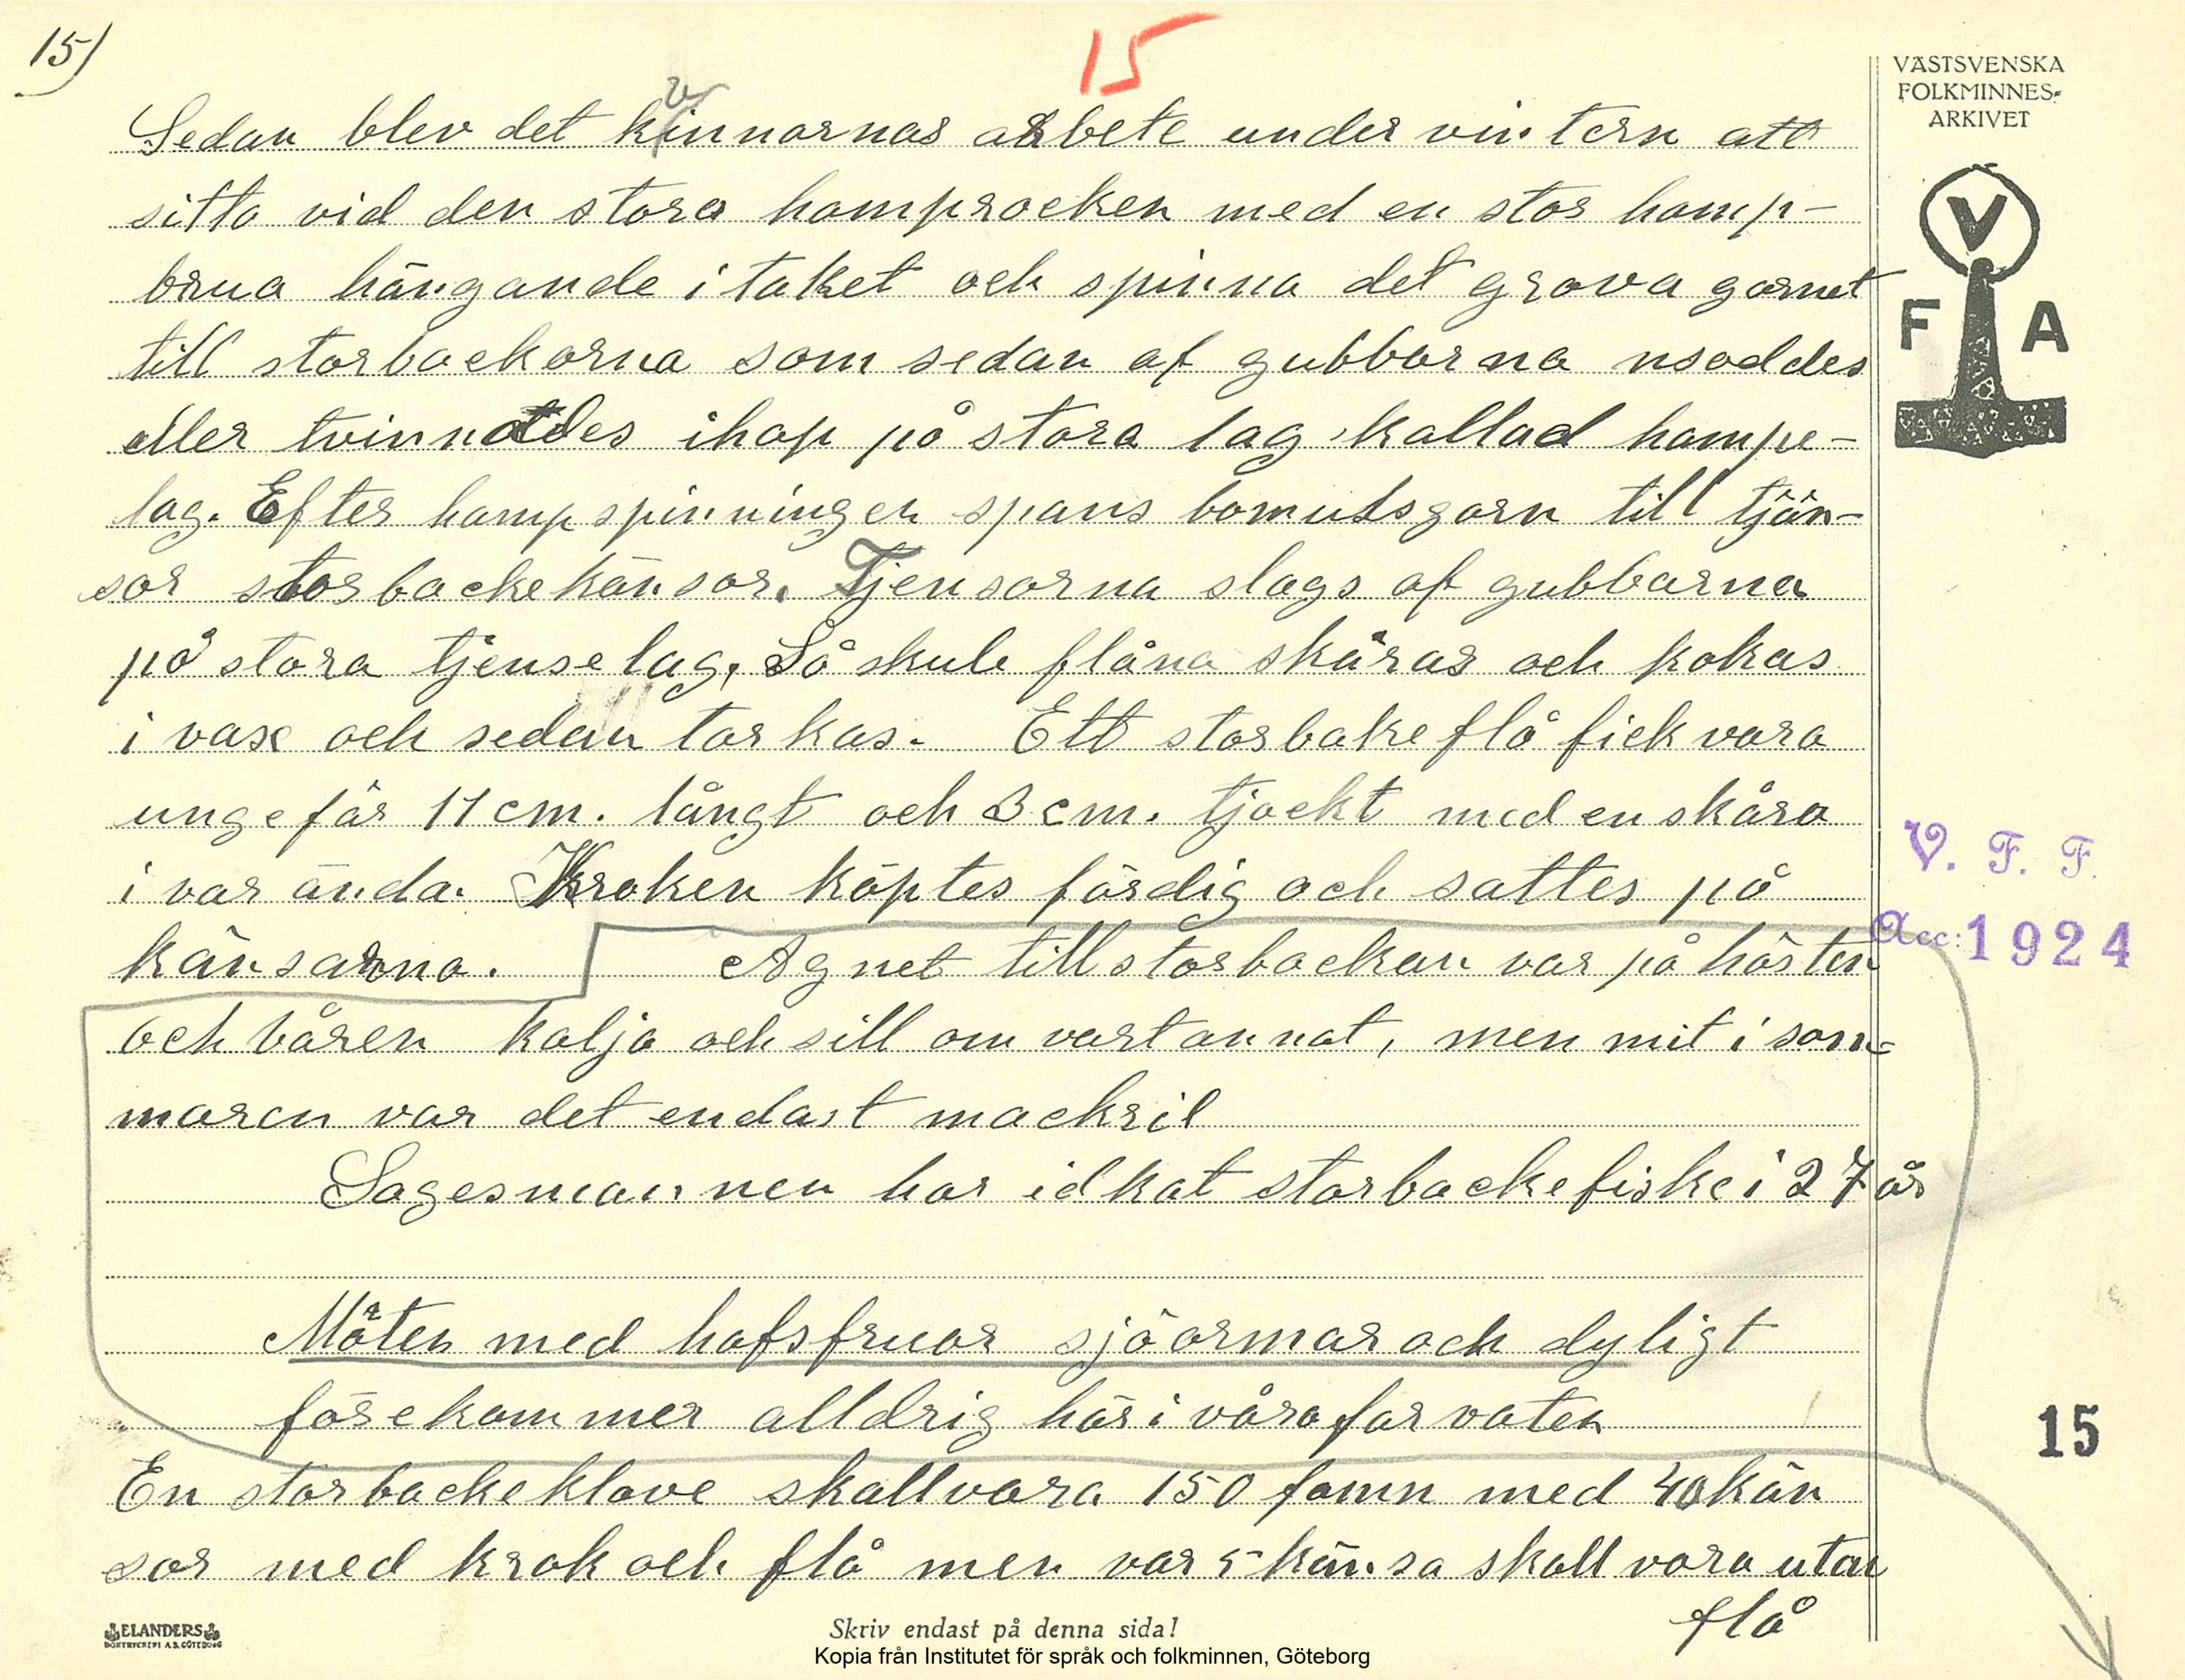 15)
15
VÄSTSVENSKA
FOLKMINNES-
ARKIVET
Sedan blev det kvinnornas arbete under vintern att
sitta vid den stora hamprocken med en stor hamp-
brua hängande i taket och spinna det grova garnet
till storbackorna som sedan af gubbarna snoddes
eller tvinnades ihop på stora lag kallad hampe-
lag. Efter hampspinningen spans bomulsgarn till tjän-
sor storbackekänsor. Tjensorna slogs af gubbarna
på stora tjenselag, Så skule flåna skäras och kokas
i vax och sedan torkas. Ett storbakeflå fick vara
ungefär 11 cm. långt och 3 cm. tjockt med en skåra
i var ända. Kroken köptes färdig och sattes på
känsorna. Agnet till storbackan var på hösten
och våren kolja och sill om vartannat, men mit i som-
maren var det endast mackril
Sagesmannen har idkat storbackefiske i 27 år
Möten med hafsfruar sjöormar och dyligt
förekommer alldrig här i våra farvaten
En storbackeklove skall vara 150 famn med 40 kän
sor med krok och flå men var 5 känsa skall vara utan
flå
V
F A
V. F. F.
Acc: 1924
15
ELANDERS
BOKTRYCKERI A.B. GÖTEBORG
Skriv endast på denna sida!
Kopia från Institutet för språk och folkminnen, Göteborg